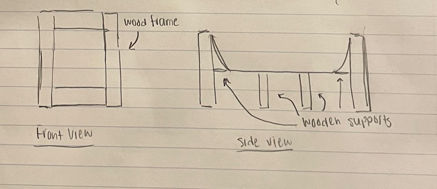 wood frame
wooden supports
Front view
side view